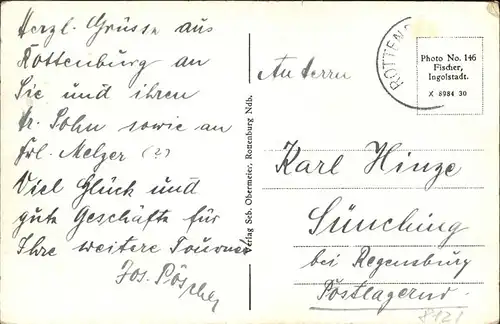 Herzl. Grüsse aus
Rottenburg an
Sie und ihren
Hr. Sohn sowie an
Frl. Melzer (?)
Viel Glück und
gute Geschäfte für
Ihre weitere
Jos.
Verlag Seb. Obermeier, Rottenburg Ndb.
ROTTEN
Photo No. 146
Fischer,
Ingolstadt.
X 8984 30
An Herrn
Karl Hinze
Sünching
bei Regensburg
Postlagernd.
8121